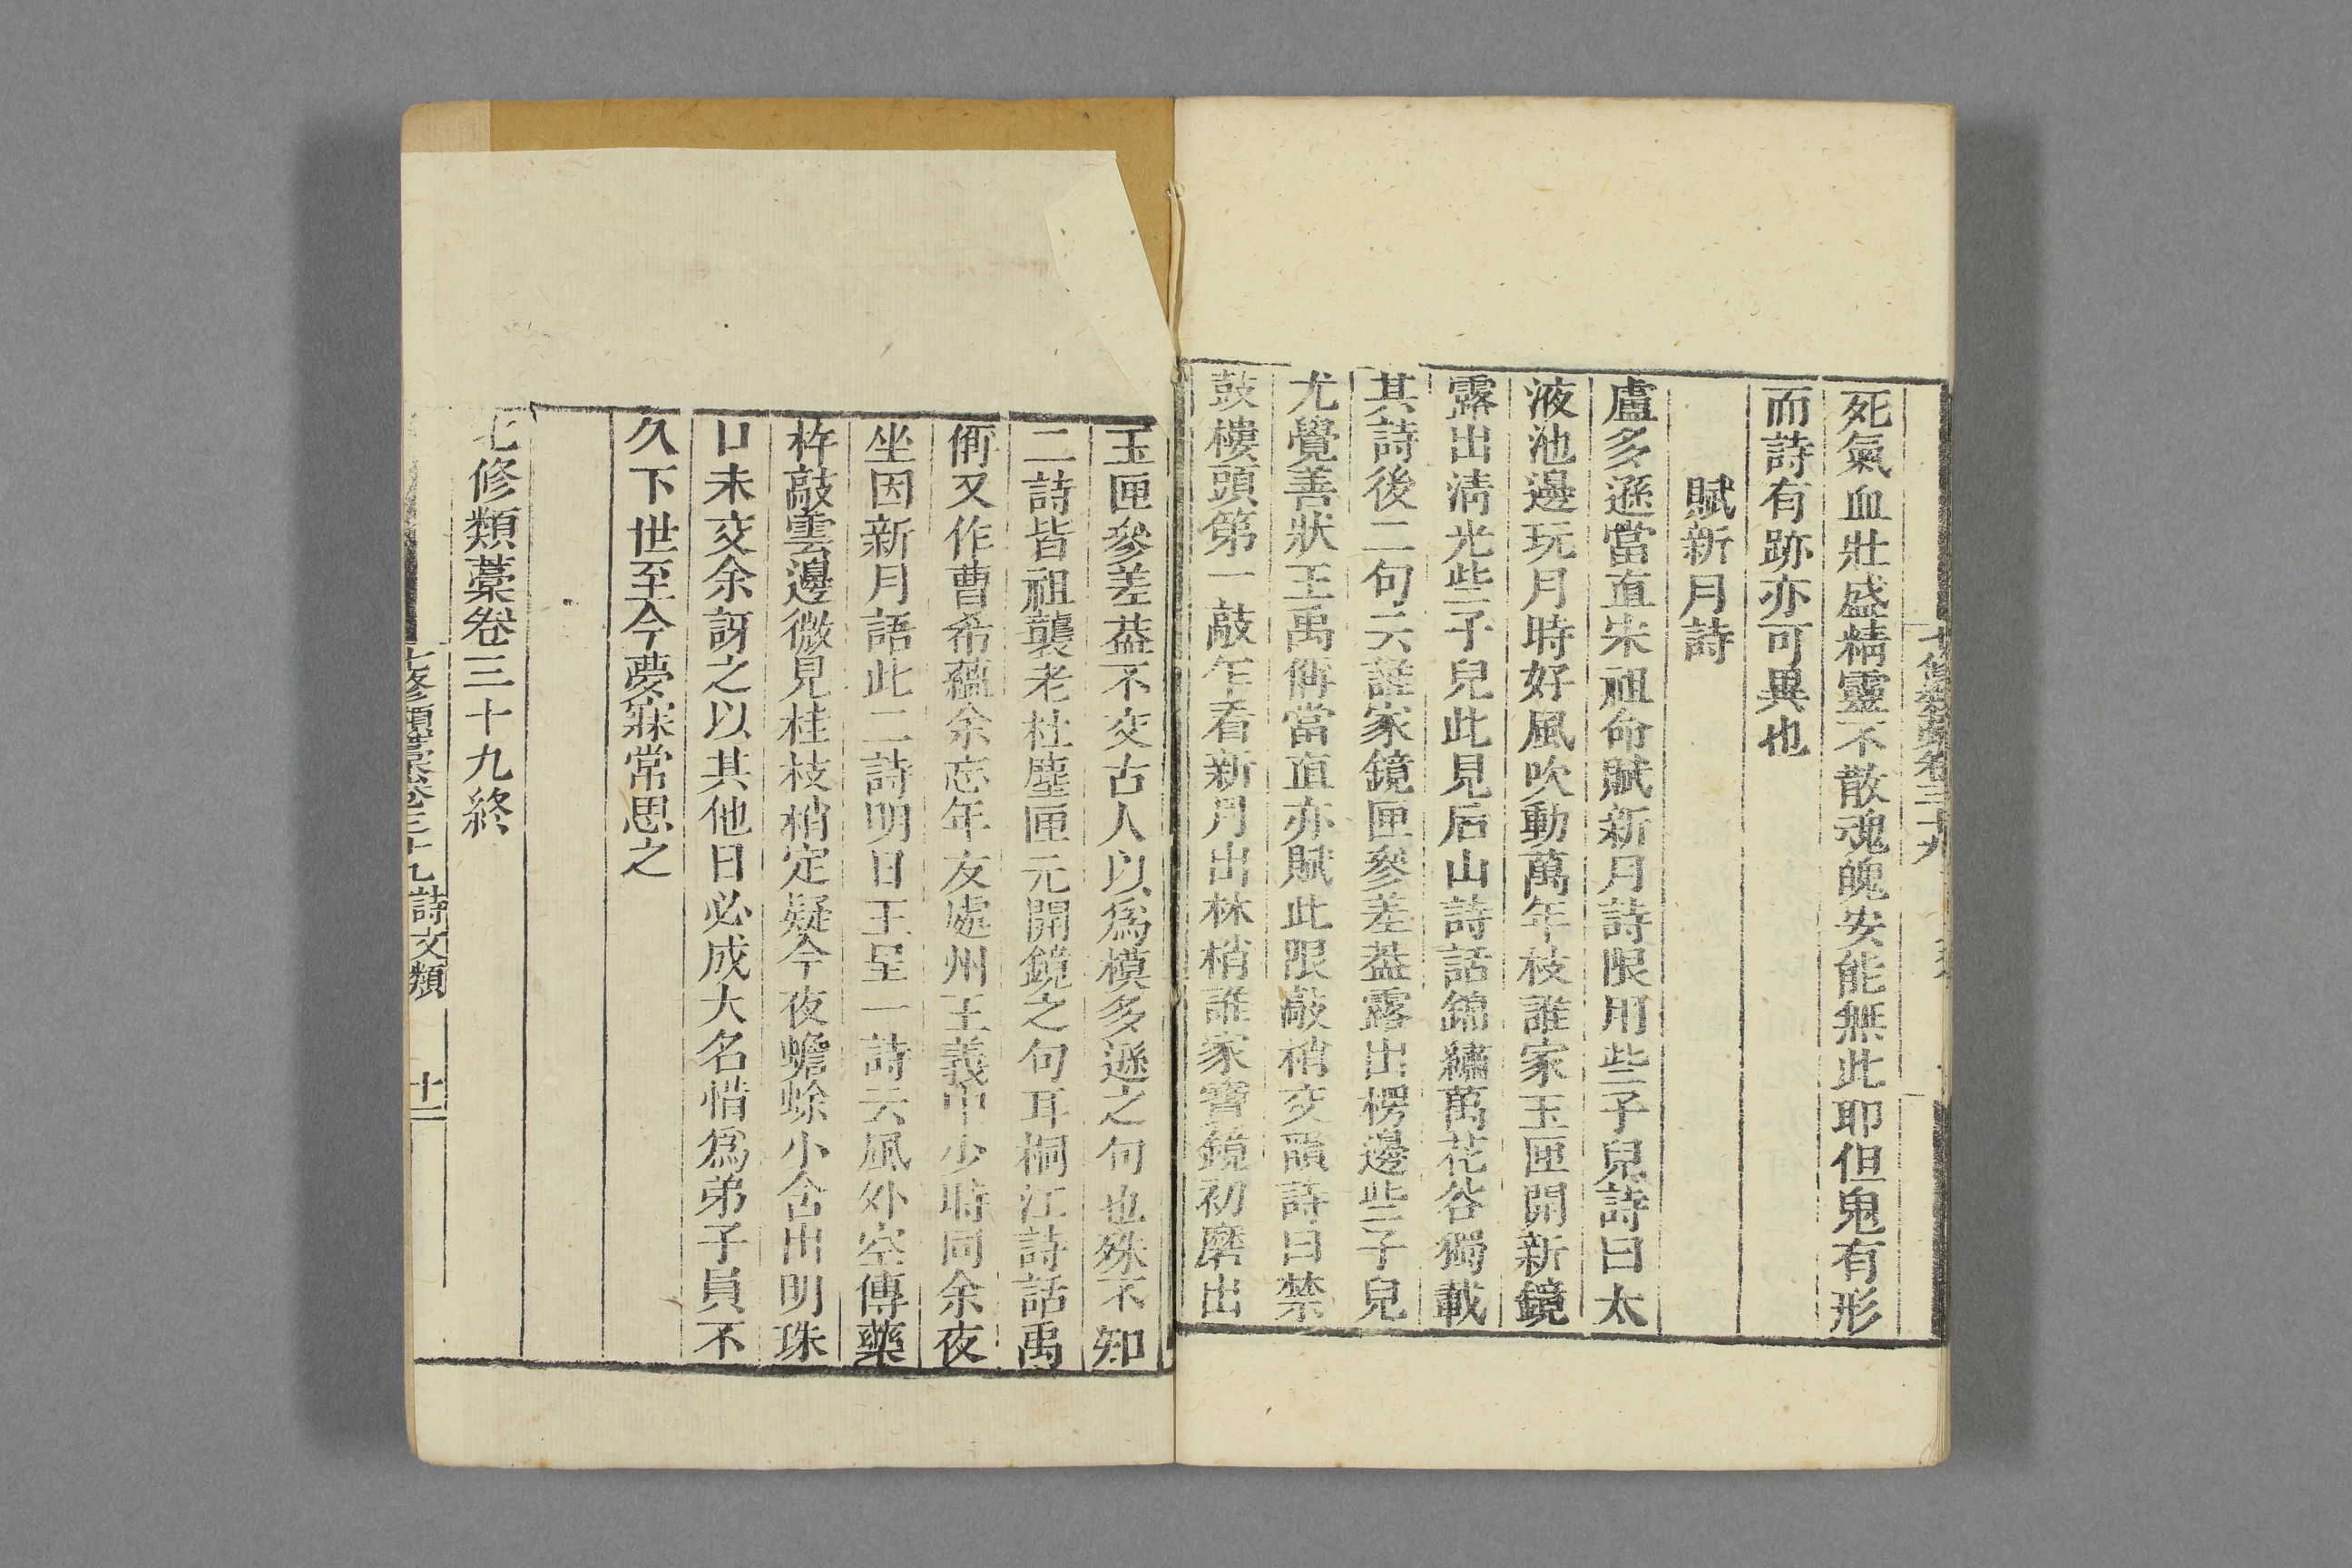 死氣血壯盛精靈不散魂魄安能無此耶但鬼有形
而詩有跡亦可異也
賦新月詩
盧多遜當直宋祖命賦新月詩限用些子兒詩曰太
液池邊玩月時好風吹動萬年枝誰家玉匣開新鏡
露出清光些子兒此見后山詩話錦繡萬花谷獨載
其詩後二句云誰家鏡匣參差葢露出楞邊些子兒
尤覺善狀王禹偁當直亦賦此限敲梢交韻詩曰禁
鼓樓頭第一敲乍看新月出林梢誰家寶鏡初磨出
玉匣參差葢不交古人以爲模多遜之句也殊不知
二詩皆祖襲老杜塵匣元開鏡之句耳桐江詩話禹
偁又作曹希蘊余忘年友處州王義中少時同余夜
坐因新月語此二詩明日王呈一詩云風外空傳藥
杵敲雲邊微見桂枝梢定疑今夜蟾蜍小含出明珠
口未交余訝之以其他日必成大名惜爲弟子員不
久下世至今夢寐常思之
七修類藁卷三十九終
七修類藁卷三十九 詩文類 十一